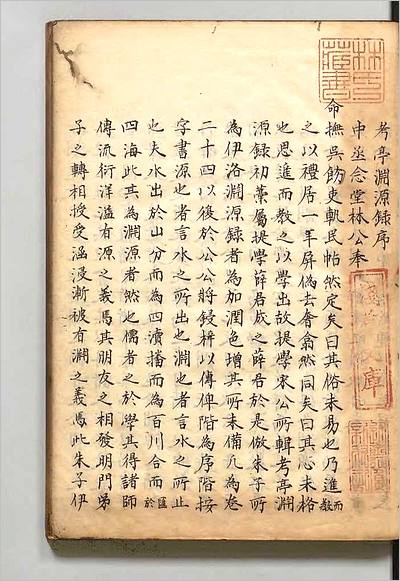 林氏
藏書
考亭淵源錄序
中丞念堂林公奉
命撫吳飭吏軌民帖然定矣曰其俗未易也乃進而教
之以禮居一年屏偽去奢翕然同矣曰其心未格
也思進而教之以學出故提學宋公所輯考亭淵
源錄初藁屬提學薛君成之薛君於是倣朱子所
為伊洛淵源錄者為加潤色增其所未備凡為卷
二十四以復於公公將鋟梓以傳俾階為序階按
字書源也者言水之所出也淵也者言水之所止
也夫水出於山分而為四瀆播而為百川合而匯於
四海此其為淵源者然也儒者之於學其得諸師
傳流衍洋溢有源之義焉其朋友之相發明門弟
子之轉相授受涵浸漸被有淵之義焉此朱子伊